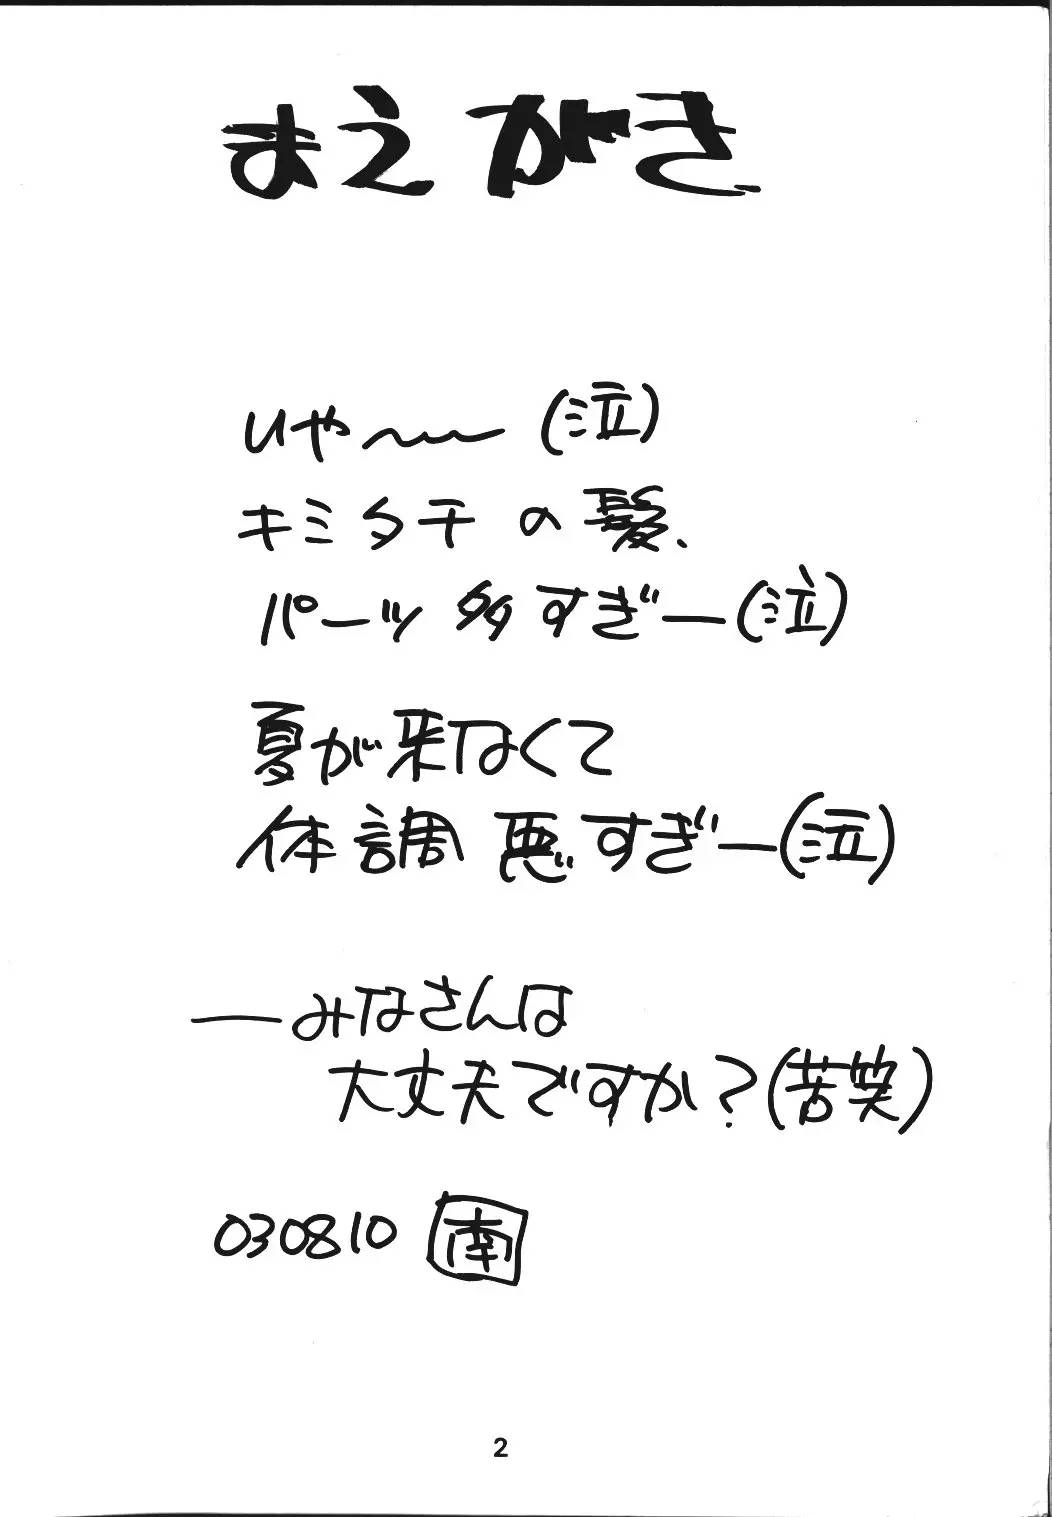 まえがき
いや〜〜 (泣)
キミタチの髪、
パーツ多すぎー(泣)
夏が来なくて
体調悪すぎー(泣)
―みなさんは
大丈夫ですか?(苦笑)
030810 南
2